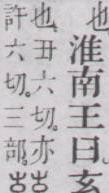 也。淮南王曰。玄
也。丑六切。亦
許六切。三部。